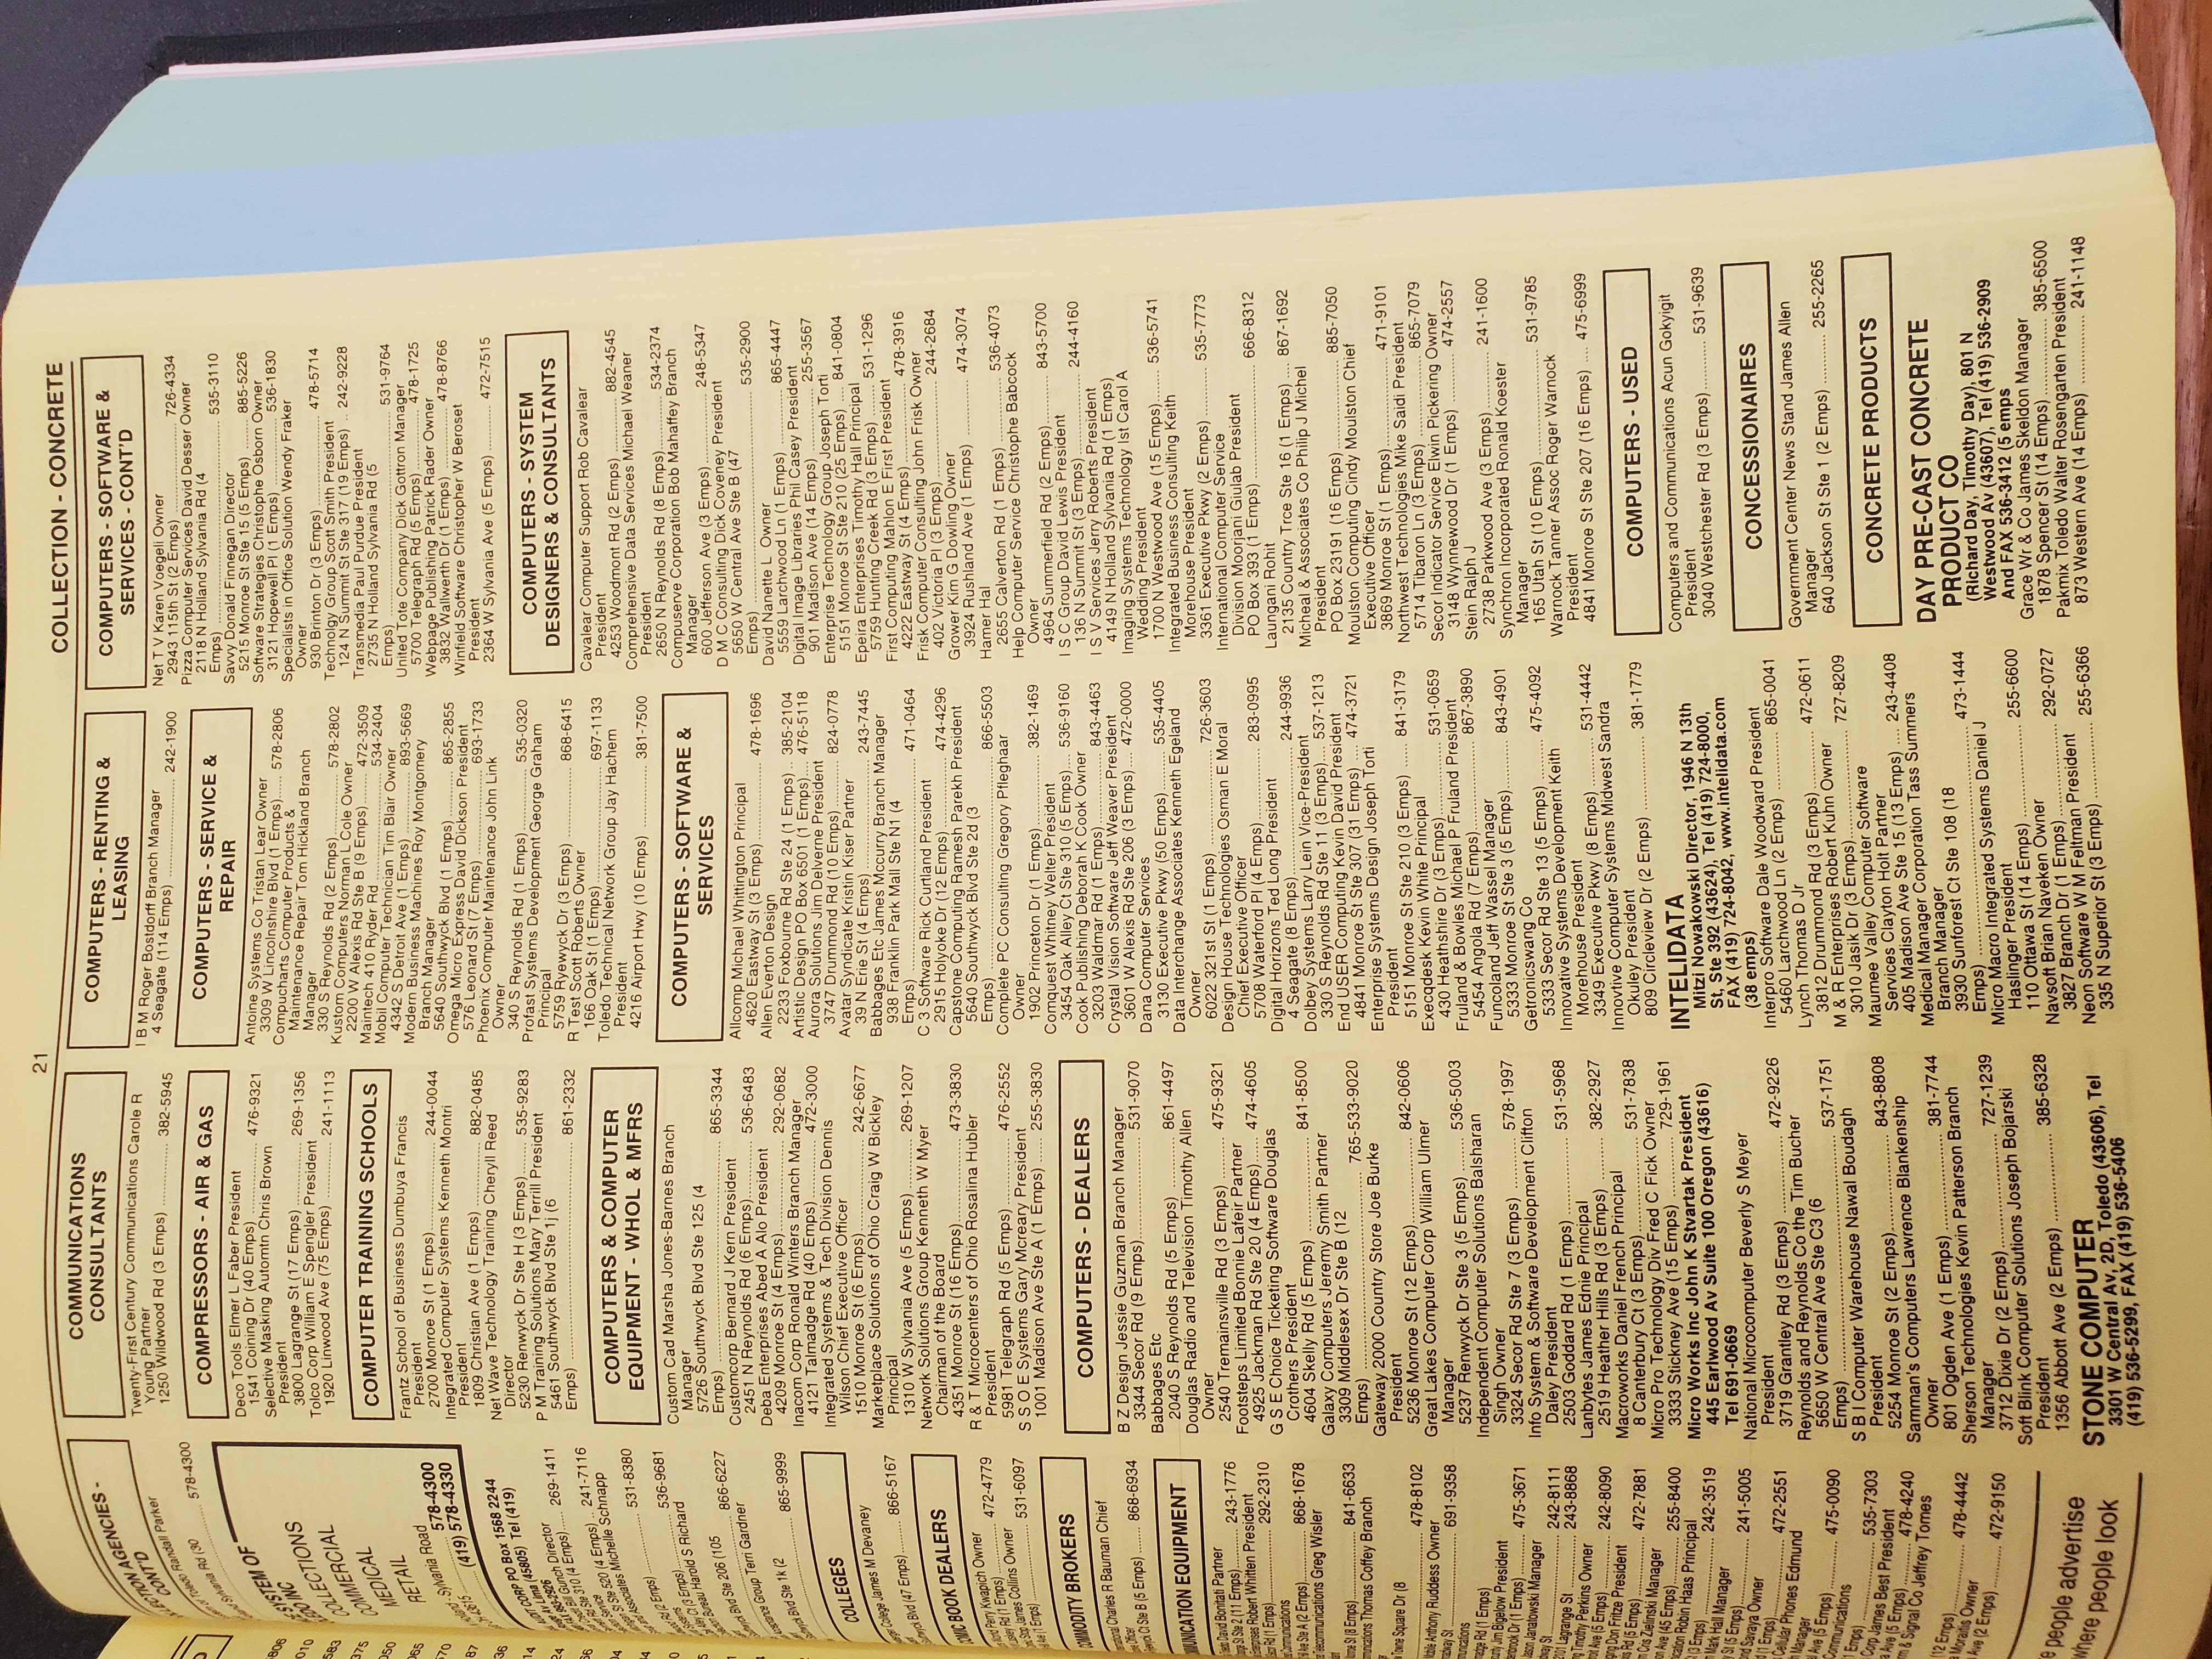 21
COLLECTION - CONCRETE
578-4300
SYSTEM OF
COLLECTIONS
COMMERCIAL
MEDICAL
RETAIL
Sylvania Road
578-4300
(419) 578-4330
CORP PO Box 1568 2244
Lima (45805) Tel (419)
Gunch Director
269-1411
241-7116
Michelle Schnapp
531-8380
536-9681
Harold S Richard
Ste 206 (105
866-6227
Group Terri Gardner
Blvd Ste 1k (2
865-9999
COLLEGES
College James M Devaney
Blvd (47 Emps) 866-5167
COMIC BOOK DEALERS
Perry Kwapich Owner
472-4779
James Collins Owner
531-6097
COMMODITY BROKERS
Charles R Bauman Chief
Ct Ste B (5 Emps) 868-6934
COMMUNICATION EQUIPMENT
David Bonfiati Partner
243-1776
Robert Whitten President
292-2310
868-1678
Telecommunications Greg Wisler
841-6633
Communications Thomas Coffey Branch
Towne Square Dr (8
478-8102
Anthony Ruddess Owner
691-9358
475-3671
Jim Bigelow President
242-8111
Jason Janatkowski Manager
2101 Lagrange St 243-8868
Timothy Perkins Owner
242-8090
Don Fritze President
472-7881
Cris Zielinski Manager
255-8400
Robin Haas Principal
242-3519
Mark Hall Manager
241-5005
Saraya Owner
472-2551
Cellular Phones Edmund
Manager
475-0090
Communications
535-7303
Corp James Best President
478-4240
& Signal Co Jeffrey Tomes
478-4442
Moraitis Owner
Ave (2 Emps) 472-9150
people advertise
where people look
COMMUNICATIONS
CONSULTANTS
Twenty-First Century Communications Carole R
Young Partner
1250 Wildwood Rd (3 Emps) 382-5945
COMPRESSORS - AIR & GAS
Deco Tools Elmer L Faber President
1541 Coining Dr (40 Emps) 476-9321
Selective Masking Automtn Chris Brown
President
3800 Lagrange St (17 Emps) 269-1356
Tolco Corp William E Spengler President
1920 Linwood Ave (75 Emps) 241-1113
COMPUTER TRAINING SCHOOLS
Frantz School of Business Dumbuya Francis
President
2700 Monroe St (1 Emps) 244-0044
Integrated Computer Systems Kenneth Montri
President
1809 Christian Ave (1 Emps) 882-0485
Net Wave Technology Training Cheryll Reed
Director
5230 Renwyck Dr Ste H (3 Emps) 535-9283
P M Training Solutions Mary Terrill President
5461 Southwyck Blvd Ste 1j (6
Emps) 861-2332
COMPUTERS & COMPUTER
EQUIPMENT - WHOL & MFRS
Custom Cad Marsha Jones-Barnes Branch
Manager
5726 Southwyck Blvd Ste 125 (4
Emps) 865-3344
Customcorp Bernard J Kern President
2451 N Reynolds Rd (6 Emps) 536-6483
Deba Enterprises Abed A Alo President
4209 Monroe St (4 Emps) 292-0682
Inacom Corp Ronald Winters Branch Manager
4121 Talmadge Rd (40 Emps) 472-3000
Integrated Systems & Tech Division Dennis
Wilson Chief Executive Officer
1510 Monroe St (6 Emps) 242-6677
Marketplace Solutions of Ohio Craig W Bickley
Principal
1310 W Sylvania Ave (5 Emps) 269-1207
Network Solutions Group Kenneth W Myer
Chairman of the Board
4351 Monroe St (16 Emps) 473-3830
R & T Microcenters of Ohio Rosalina Hubler
President
5981 Telegraph Rd (5 Emps) 476-2552
S S O E Systems Gary Mcreary President
1001 Madison Ave Ste A (1 Emps) 255-3830
COMPUTERS - DEALERS
B Z Design Jessie Guzman Branch Manager
3344 Secor Rd (9 Emps) 531-9070
Babbages Etc
2040 S Reynolds Rd (5 Emps) 861-4497
Douglas Radio and Television Timothy Allen
Owner
2540 Tremainsville Rd (3 Emps) 475-9321
Footsteps Limited Bonnie Lafeir Partner
4925 Jackman Rd Ste 20 (4 Emps) 474-4605
G S E Choice Ticketing Software Douglas
Crothers President
4604 Skelly Rd (5 Emps) 841-8500
Galaxy Computers Jeremy Smith Partner
3309 Middlesex Dr Ste B (12
Emps) 765-533-9020
Gateway 2000 Country Store Joe Burke
President
5236 Monroe St (12 Emps) 842-0606
Great Lakes Computer Corp William Ulmer
Manager
5237 Renwyck Dr Ste 3 (5 Emps) 536-5003
Independent Computer Solutions Balsharan
Singh Owner
3324 Secor Rd Ste 7 (3 Emps) 578-1997
Info System & Software Development Clifton
Daley President
2503 Goddard Rd (1 Emps) 531-5968
Lanbytes James Ednie Principal
2519 Heather Hills Rd (3 Emps) 382-2927
Macroworks Daniel French Principal
8 Canterbury Ct (3 Emps) 531-7838
Micro Pro Technology Div Fred C Fick Owner
3333 Stickney Ave (15 Emps) 729-1961
Micro Works Inc John K Stvartak President
445 Earlwood Av Suite 100 Oregon (43616)
Tel 691-0669
National Microcomputer Beverly S Meyer
President
3719 Grantley Rd (3 Emps) 472-9226
Reynolds and Reynolds Co the Tim Bucher
5650 W Central Ave Ste C3 (6
Emps) 537-1751
S B I Computer Warehouse Nawal Boudagh
President
5254 Monroe St (2 Emps) 843-8808
Samman's Computers Lawrence Blankenship
Owner
801 Ogden Ave (1 Emps) 381-7744
Sherson Technologies Kevin Patterson Branch
Manager
3712 Dixie Dr (2 Emps) 727-1239
Soft Blink Computer Solutions Joseph Bojarski
President
1356 Abbott Ave (2 Emps) 385-6328
STONE COMPUTER
3301 W Central Av, 2D, Toledo (43606), Tel
(419) 536-5299, FAX (419) 536-5406
COMPUTERS - RENTING &
LEASING
I B M Roger Bostdorff Branch Manager
4 Seagate (114 Emps) 242-1900
COMPUTERS - SERVICE &
REPAIR
Antoine Systems Co Tristan Lear Owner
3309 W Lincolnshire Blvd (1 Emps) 578-2806
Compucharts Computer Products &
Maintenance Repair Tom Hickland Branch
Manager
330 S Reynolds Rd (2 Emps) 578-2802
Kustom Computers Norman L Cole Owner
2200 W Alexis Rd Ste B (9 Emps) 472-3509
Maintech 410 Ryder Rd 534-2404
Mobil Computer Technician Tim Blair Owner
4342 S Detroit Ave (1 Emps) 893-5669
Modern Business Machines Roy Montgomery
Branch Manager
5640 Southwyck Blvd (1 Emps) 865-2855
Omega Micro Express David Dickson President
576 Leonard St (7 Emps) 693-1733
Phoenix Computer Maintenance John Link
Owner
340 S Reynolds Rd (1 Emps) 535-0320
Profast Systems Development George Graham
Principal
5759 Ryewyck Dr (3 Emps) 868-6415
R Test Scott Roberts Owner
166 Oak St (1 Emps) 697-1133
Toledo Technical Network Group Jay Hachem
President
4216 Airport Hwy (10 Emps) 381-7500
COMPUTERS - SOFTWARE &
SERVICES
Allcomp Michael Whittington Principal
4620 Eastway St (3 Emps) 478-1696
Allen Everton Design
2233 Foxbourne Rd Ste 24 (1 Emps) 385-2104
Artistic Design PO Box 6501 (1 Emps) 476-5118
Aurora Solutions Jim Deiverne President
3747 Drummond Rd (10 Emps) 824-0778
Avatar Syndicate Kristin Kiser Partner
39 N Erie St (4 Emps) 243-7445
Babbages Etc James Mccurry Branch Manager
938 Franklin Park Mall Ste N1 (4
Emps) 471-0464
C 3 Software Rick Curtland President
2915 Holyoke Dr (12 Emps) 474-4296
Capstone Computing Ramesh Parekh President
5640 Southwyck Blvd Ste 2d (3
Emps) 866-5503
Complete PC Consulting Gregory Pfleghaar
Owner
1902 Princeton Dr (1 Emps) 382-1469
Comquest Whitney Welter President
3454 Oak Alley Ct Ste 310 (5 Emps) 536-9160
Cook Publishing Deborah K Cook Owner
3203 Waldmar Rd (1 Emps) 843-4463
Crystal Vision Software Jeff Weaver President
3601 W Alexis Rd Ste 206 (3 Emps) 472-0000
Dana Computer Services
3130 Executive Pkwy (50 Emps) 535-4405
Data Interchange Associates Kenneth Egeland
Owner
6022 321st St (1 Emps) 726-3603
Design House Technologies Osman E Moral
Chief Executive Officer
5708 Waterford Pl (1 Emps) 283-0995
Digital Horizons Ted Long President
4 Seagate (8 Emps) 244-9936
Dolbey Systems Larry Lein Vice-President
330 S Reynolds Rd Ste 11 (3 Emps) 537-1213
End USER Computing Kevin David President
4841 Monroe St Ste 307 (31 Emps) 474-3721
Enterprise Systems Design Joseph Torti
President
5151 Monroe St Ste 210 (3 Emps) 841-3179
Execqdesk Kevin White Principal
430 Heathshire Dr (3 Emps) 531-0659
Fruland & Bowles Michael P Fruland President
5454 Angola Rd (7 Emps) 867-3890
Funcoland Jeff Wassel Manager
5333 Monroe St Ste 3 (5 Emps) 843-4901
Getronicswang Co
5333 Secor Rd Ste 13 (5 Emps) 475-4092
Innovative Systems Development Keith
Morehouse President
3349 Executive Pkwy (8 Emps) 531-4442
Innovtive Computer Systems Midwest Sandra
Okuley President
809 Circleview Dr (2 Emps) 381-1779
INTELIDATA
Mitzi Nowakowski Director, 1946 N 13th
St, Ste 392 (43624), Tel (419) 724-8000,
FAX (419) 724-8042, www.intelidata.com
(38 emps)
Interpro Software Dale Woodward President
5460 Larchwood Ln (2 Emps) 865-0041
Lynch Thomas D Jr
3812 Drummond Rd (3 Emps) 472-0611
M & R Enterprises Robert Kuhn Owner
3010 Jasik Dr (3 Emps) 727-8209
Maumee Valley Computer Software
Services Clayton Holt Partner
405 Madison Ave Ste 15 (13 Emps) 243-4408
Medical Manager Corporation Tass Summers
Branch Manager
3930 Sunforest Ct Ste 108 (18
Emps) 473-1444
Micro Macro Integrated Systems Daniel J
Haslinger President
110 Ottawa St (14 Emps) 255-6600
Navsoft Brian Naveken Owner
3827 Branch Dr (1 Emps) 292-0727
Neon Software W M Feltman President
335 N Superior St (3 Emps) 255-6366
COMPUTERS - SOFTWARE &
SERVICES - CONT'D
Net T V Karen Voegeli Owner
2943 115th St (2 Emps) 726-4334
Pizza Computer Services David Desser Owner
2118 N Holland Sylvania Rd (4
Emps) 535-3110
Savvy Donald Finnegan Director
5215 Monroe St Ste 15 (5 Emps) 885-5226
Software Strategies Christophe Osborn Owner
3121 Hopewell Pl (1 Emps) 536-1830
Specialists in Office Solution Wendy Fraker
Owner
930 Brinton Dr (3 Emps) 478-5714
Technology Group Scott Smith President
124 N Summit St Ste 317 (19 Emps) 242-9228
Transmedia Paul Purdue President
2735 N Holland Sylvania Rd (5
Emps) 531-9764
United Tote Company Dick Gottron Manager
5700 Telegraph Rd (5 Emps) 478-1725
Webpage Publishing Patrick Rader Owner
3832 Wallwerth Dr (1 Emps) 478-8766
Winfield Software Christopher W Beroset
President
2364 W Sylvania Ave (5 Emps) 472-7515
COMPUTERS - SYSTEM
DESIGNERS & CONSULTANTS
Cavalear Computer Support Rob Cavalear
President
4253 Woodmont Rd (2 Emps) 882-4545
Comprehensive Data Services Michael Weaner
President
2650 N Reynolds Rd (8 Emps) 534-2374
Compuserve Corporation Bob Mahaffey Branch
Manager
600 Jefferson Ave (3 Emps) 248-5347
D M C Consulting Dick Coveney President
5650 W Central Ave Ste B (47
Emps) 535-2900
David Nanette L Owner
5559 Larchwood Ln (1 Emps) 865-4447
Digital Image Libraries Phil Casey President
901 Madison Ave (14 Emps) 255-3567
Enterprise Technology Group Joseph Torti
5151 Monroe St Ste 210 (25 Emps) 841-0804
Epeira Enterprises Timothy Hall Principal
5759 Hunting Creek Rd (3 Emps) 531-1296
First Computing Mahlon E First President
4222 Eastway St (4 Emps) 478-3916
Frisk Computer Consulting John Frisk Owner
402 Victoria Pl (3 Emps) 244-2684
Grower Kim G Dowling Owner
3924 Rushland Ave (1 Emps) 474-3074
Hamer Hal
2655 Calverton Rd (1 Emps) 536-4073
Help Computer Service Christophe Babcock
Owner
4964 Summerfield Rd (2 Emps) 843-5700
I S C Group David Lewis President
136 N Summit St (3 Emps) 244-4160
I S V Services Jerry Roberts President
4149 N Holland Sylvania Rd (1 Emps)
Imaging Systems Technology Ist Carol A
Wedding President
1700 N Westwood Ave (15 Emps) 536-5741
Integrated Business Consulting Keith
Morehouse President
3361 Executive Pkwy (2 Emps) 535-7773
International Computer Service
Division Moorjani Gulab President
PO Box 393 (1 Emps) 666-8312
Laungani Rohit
2135 Country Trce Ste 16 (1 Emps) 867-1692
Micheal & Associates Co Philip J Michel
President
PO Box 23191 (16 Emps) 885-7050
Moulston Computing Cindy Moulston Chief
Executive Officer
3869 Monroe St (1 Emps) 471-9101
Northwest Technologies Mike Saidi President
5714 Tibaron Ln (3 Emps) 865-7079
Secor Indicator Service Elwin Pickering Owner
3148 Wynnewood Dr (1 Emps) 474-2557
Stein Ralph J
2738 Parkwood Ave (3 Emps) 241-1600
Synchron Incorporated Ronald Koester
Manager
165 Utah St (10 Emps) 531-9785
Warnock Tanner Assoc Roger Warnock
President
4841 Monroe St Ste 207 (16 Emps) 475-6999
COMPUTERS - USED
Computers and Communications Acun Gokyigit
President
3040 Westchester Rd (3 Emps) 531-9639
CONCESSIONAIRES
Government Center News Stand James Allen
Manager
640 Jackson St Ste 1 (2 Emps) 255-2265
CONCRETE PRODUCTS
DAY PRE-CAST CONCRETE
PRODUCT CO
(Richard Day, Timothy Day), 801 N
Westwood Av (43607), Tel (419) 536-2909
And FAX 536-3412 (5 emps
Grace Wr & Co James Skeldon Manager
1878 Spencer St (14 Emps) 385-6500
Pakmix Toledo Walter Rosengarten President
873 Western Ave (14 Emps) 241-1148